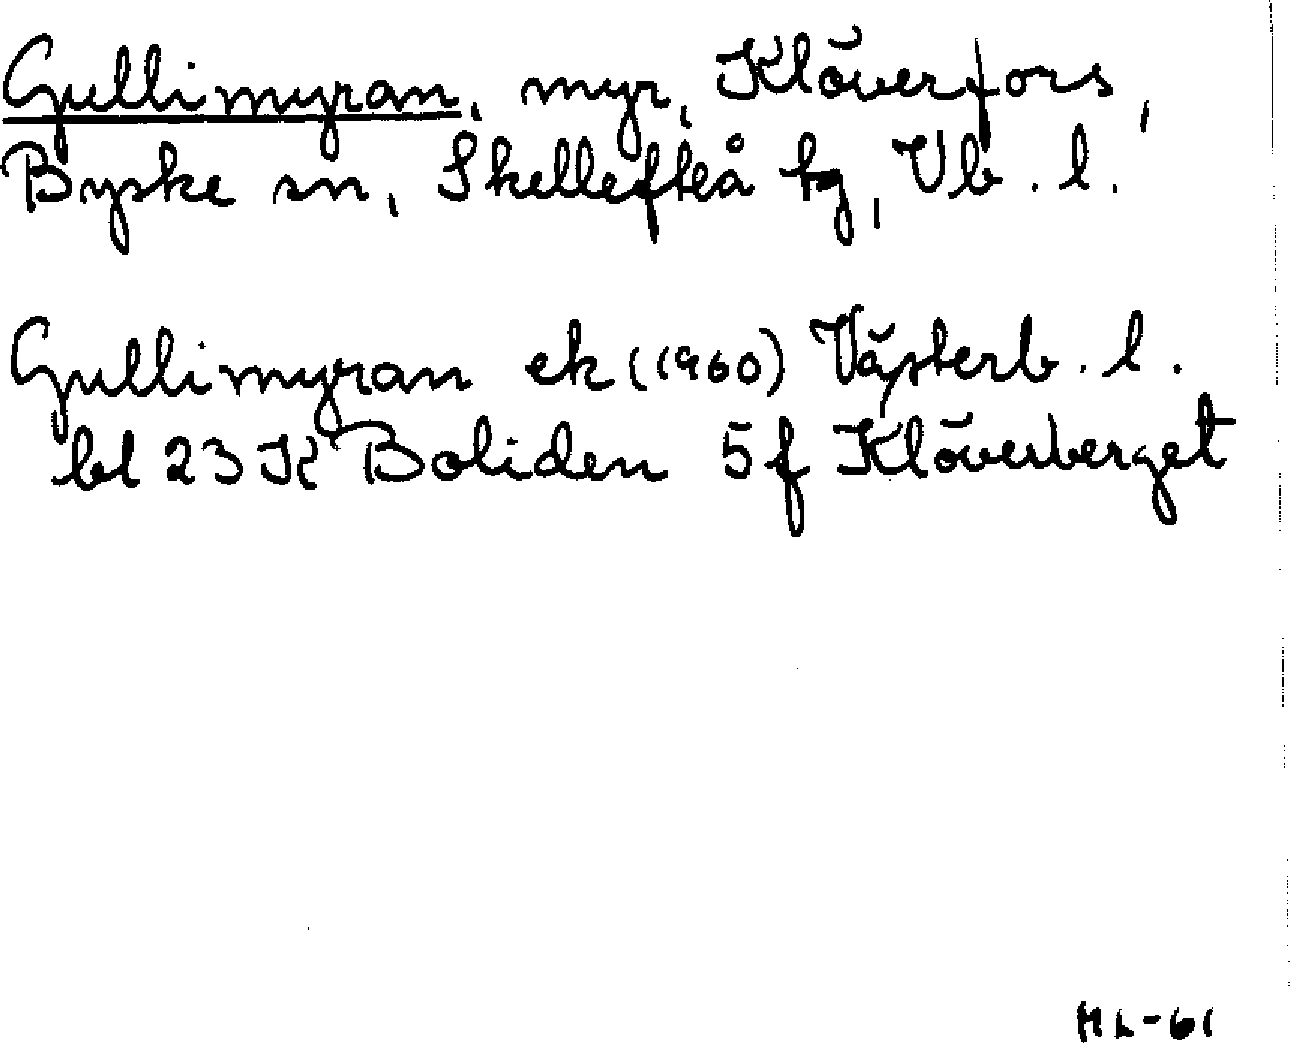 Gullimyran, myr, Klöverfors,
Byske sn, Skellefteå tg, Vb. l.
Gullimyran ek (1960) Västerb. l.
bl 23 K Boliden 5 f Klöverberget
HL-61